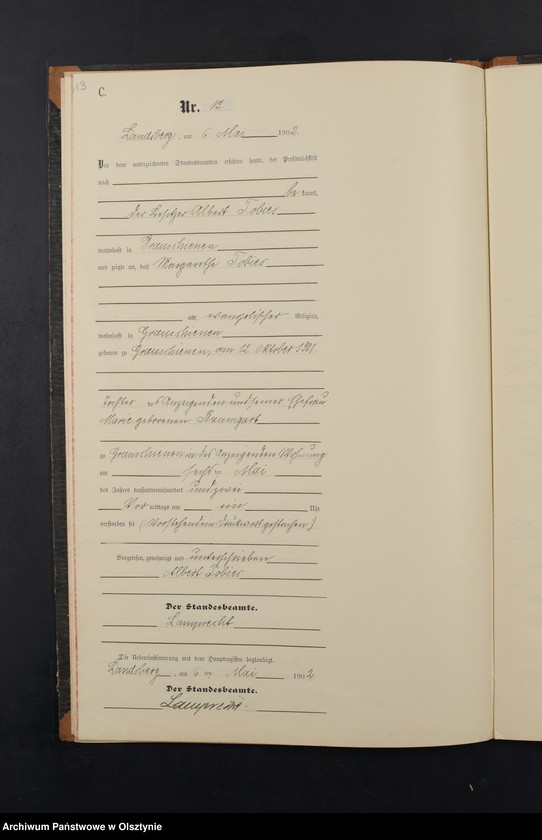 13
C.
Nr. 13.
Landsberg, am 6 Mai 1902.
Vor dem unterzeichneten Standesbeamten erschien heute, der Persönlichkeit
nach
be kannt,
der Besitzer Albert Tobies
wohnhaft in
und zeigte an, daß Margarethe Tobies
evangelischer Religion,
wohnhaft in
geboren zu am 12 Oktober 1901
Tochter des Anzeigenden und seiner Ehefrau
Marie geborenen Baumgart
zu in des Anzeigenden Wohnung
am sechsten Mai
des Jahres tausendneunhundert und zwei
Vor mittags um ein Uhr
verstorben sei (Vorstehenden Druckwort gestrichen)
Vorgelesen, genehmigt und unterschrieben
Albert Tobies
Der Standesbeamte.
Lamprecht
Die Uebereinstimmung mit dem Hauptregister beglaubigt.
Landsberg, am 6 ten Mai 1902.
Der Standesbeamte.
Lamprecht
Archiwum Państwowe w Olsztynie